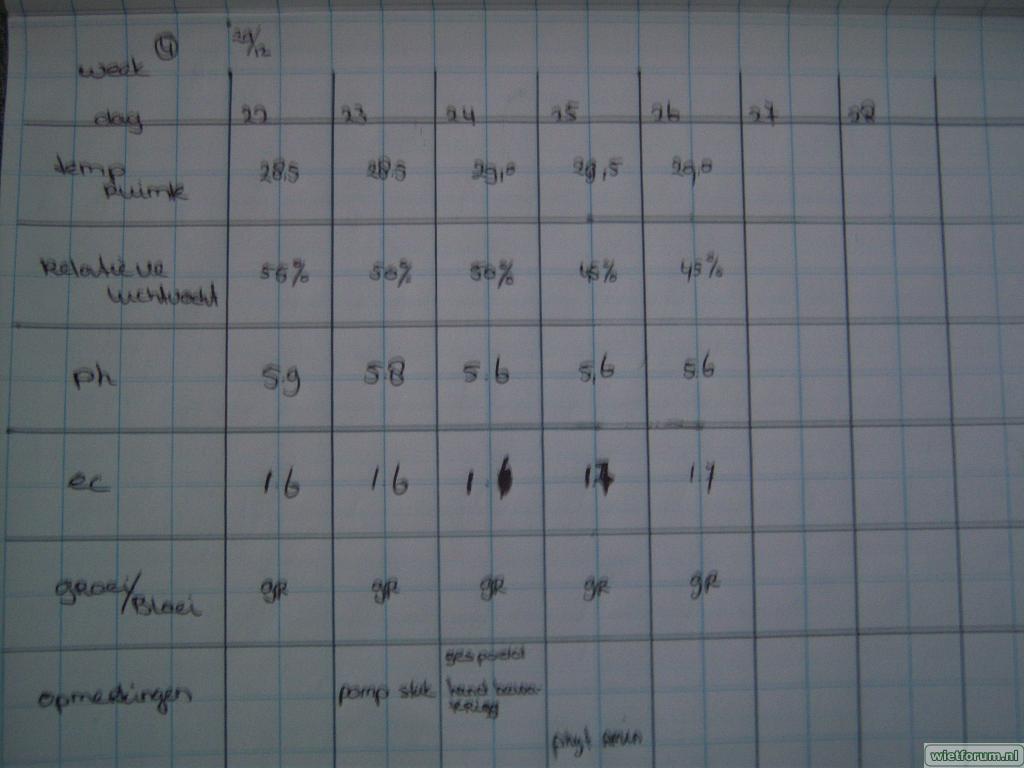 week 4
29/12
dag 22 23 24 25 26 27 28
temp ruimte 28,5 28,5 29,0 29,5 29,0
Relatieve luchtvocht 56% 50% 50% 45% 45%
ph 5.9 5.8 5.6 5.6 5.6
ec 1.6 1.6 1.6 1.7 1.7
groei/Bloei gR gR gR gR gR
opmerkingen pomp stuk gespoeld hand
wietforum.nl